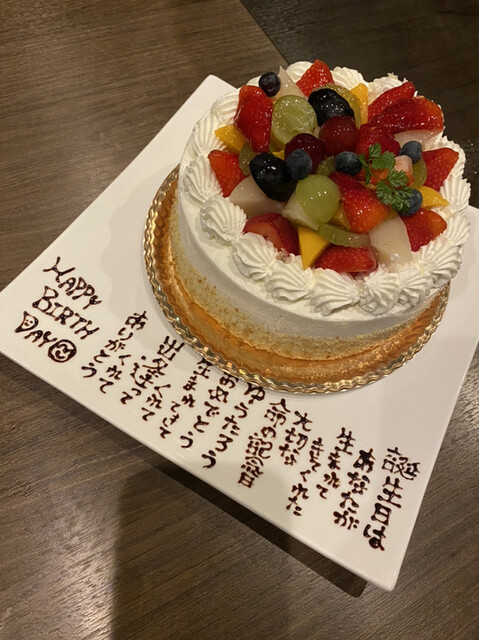 HAPPY
BIRTH
DAY
誕生日は
あなたが
生まれて
きてくれた
大切な
命の記念日
ゆうたろう
おめでとう
生まれてきて
くれて
出逢って
くれて
ありがとう